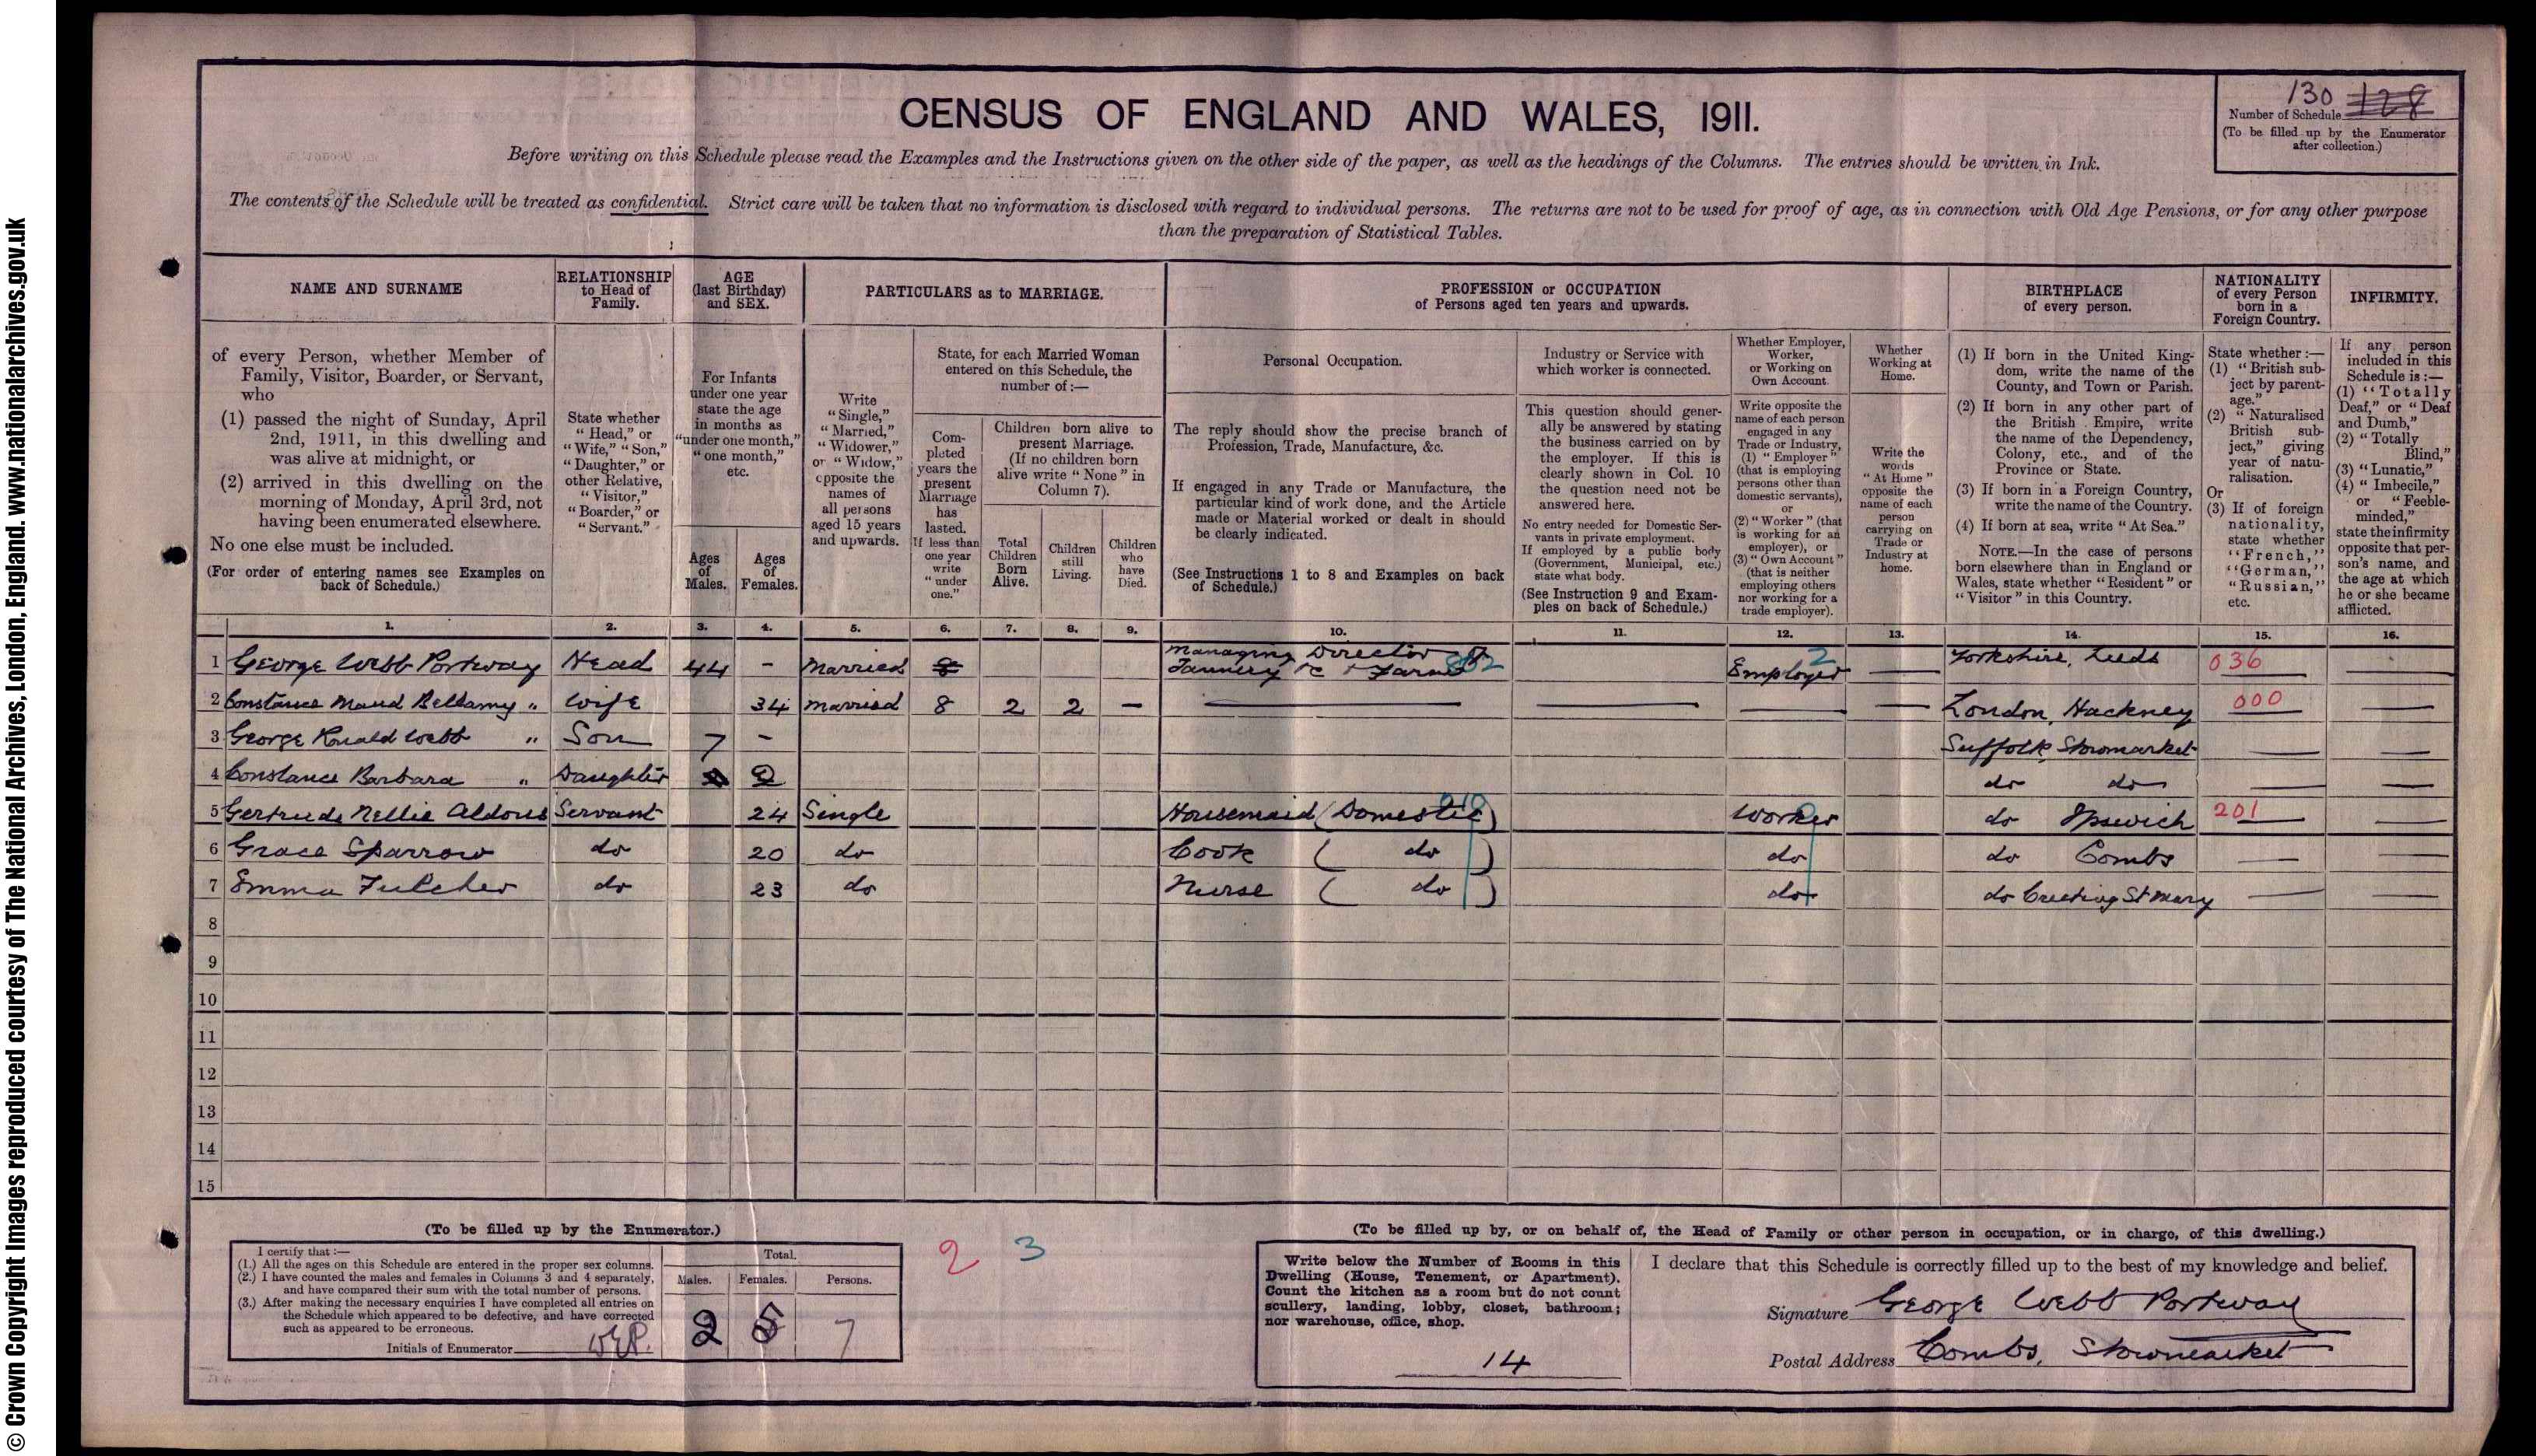 © Crown Copyright Images reproduced courtesy of The National Archives, London, England. www.nationalarchives.gov.uk
CENSUS OF ENGLAND AND WALES, 1911.
130 128
Number of Schedule
(To be filled up by the Enumerator
after collection.)
Before writing on this Schedule please read the Examples and the Instructions given on the other side of the paper, as well as the headings of the Columns. The entries should be written in Ink.
The contents of the Schedule will be treated as confidential. Strict care will be taken that no information is disclosed with regard to individual persons. The returns are not to be used for proof of age, as in connection with Old Age Pensions, or for any other purpose
than the preparation of Statistical Tables.
NAME AND SURNAME
of every Person, whether Member of
Family, Visitor, Boarder, or Servant,
who
(1) passed the night of Sunday, April
2nd, 1911, in this dwelling and
was alive at midnight, or
(2) arrived in this dwelling on the
morning of Monday, April 3rd, not
having been enumerated elsewhere.
No one else must be included.
(For order of entering names see Examples on
back of Schedule.)
RELATIONSHIP
to Head of
Family.
State whether
"Head," or
"Wife," "Son,"
"Daughter," or
other Relative,
"Visitor,"
"Boarder," or
"Servant."
AGE
(last Birthday)
and SEX.
For Infants
under one year
state the age
in months as
"under one month,"
"one month,"
etc.
Ages
of
Males.
Ages
of
Females.
PARTICULARS as to MARRIAGE.
Write
"Single,"
"Married,"
"Widower,"
or "Widow,"
opposite the
names of
all persons
aged 15 years
and upwards.
State, for each Married Woman
entered on this Schedule, the
number of:—
Com-
pleted
years the
present
Marriage
has
lasted.
If less than
one year
write
"under
one."
Children born alive to
present Marriage.
(If no children born
alive write "None" in
Column 7).
Total
Children
Born
Alive.
Children
still
Living.
Children
who
have
Died.
PROFESSION or OCCUPATION
of Persons aged ten years and upwards.
Personal Occupation.
The reply should show the precise branch of
Profession, Trade, Manufacture, &c.
If engaged in any Trade or Manufacture, the
particular kind of work done, and the Article
made or Material worked or dealt in should
be clearly indicated.
(See Instructions 1 to 8 and Examples on back
of Schedule.)
Industry or Service with
which worker is connected.
This question should gener-
ally be answered by stating
the business carried on by
the employer. If this is
clearly shown in Col. 10
the question need not be
answered here.
No entry needed for Domestic Ser-
vants in private employment.
If employed by a public body
(Government, Municipal, etc.)
state what body.
(See Instruction 9 and Exam-
ples on back of Schedule.)
Whether Employer,
Worker,
or Working on
Own Account.
Write opposite the
name of each person
engaged in any
Trade or Industry,
(1) "Employer"
(that is employing
persons other than
domestic servants),
or
(2) "Worker" (that
is working for an
employer), or
(3) "Own Account"
(that is neither
employing others
nor working for a
trade employer).
Whether
Working at
Home.
Write the
words
"At Home"
opposite the
name of each
person
carrying on
Trade or
Industry at
home.
BIRTHPLACE
of every person.
(1) If born in the United King-
dom, write the name of the
County, and Town or Parish.
(2) If born in any other part of
the British Empire, write
the name of the Dependency,
Colony, etc., and of the
Province or State.
(3) If born in a Foreign Country,
write the name of the Country.
(4) If born at sea, write "At Sea."
NOTE.—In the case of persons
born elsewhere than in England or
Wales, state whether "Resident" or
"Visitor" in this Country.
NATIONALITY
of every Person
born in a
Foreign Country.
State whether:—
(1) "British sub-
ject by parent-
age."
(2) "Naturalised
British sub-
ject," giving
year of natu-
ralisation.
Or
(3) If of foreign
nationality,
state whether
"French,"
"German,"
"Russian,"
etc.
INFIRMITY.
If any person
included in this
Schedule is:—
(1) "Totally
Deaf," or "Deaf
and Dumb,"
(2) "Totally
Blind,"
(3) "Lunatic,"
(4) "Imbecile,"
or "Feeble-
minded,"
state the infirmity
opposite that per-
son's name, and
the age at which
he or she became
afflicted.
1. 2. 3. 4. 5. 6. 7. 8. 9. 10. 11. 12. 13. 14. 15. 16.
1 George Webb Portway Head 44 – Married 8 Managing Director Tannery Employer 2 — Yorkshire, Leeds 036 —
2 Constance Maud Bellamy " Wife 34 Married 8 2 2 – — — — — London, Hackney 000 —
3 George Ronald Webb " Son 7 – Suffolk Stowmarket — —
4 Constance Barbara " Daughter 2 do do — —
5 Gertrude Nellie Aldous Servant 24 Single Housemaid (Domestic) Worker do Ipswich 201 —
6 Grace Sparrow do 20 do Cook ( do ) do do Combs — —
7 Emma Fulcher do 23 do Nurse ( do ) do do Creeting St Mary — —
8
9
10
11
12
13
14
15
(To be filled up by the Enumerator.)
I certify that:—
(1.) All the ages on this Schedule are entered in the proper sex columns.
(2.) I have counted the males and females in Columns 3 and 4 separately,
and have compared their sum with the total number of persons.
(3.) After making the necessary enquiries I have completed all entries on
the Schedule which appeared to be defective, and have corrected
such as appeared to be erroneous.
Initials of Enumerator
Total.
Males. Females. Persons.
2 5 7
2 3
(To be filled up by, or on behalf of, the Head of Family or other person in occupation, or in charge, of this dwelling.)
Write below the Number of Rooms in this
Dwelling (House, Tenement, or Apartment).
Count the kitchen as a room but do not count
scullery, landing, lobby, closet, bathroom;
nor warehouse, office, shop.
14
I declare that this Schedule is correctly filled up to the best of my knowledge and belief.
Signature George Webb Portway
Postal Address Combs, Stowmarket